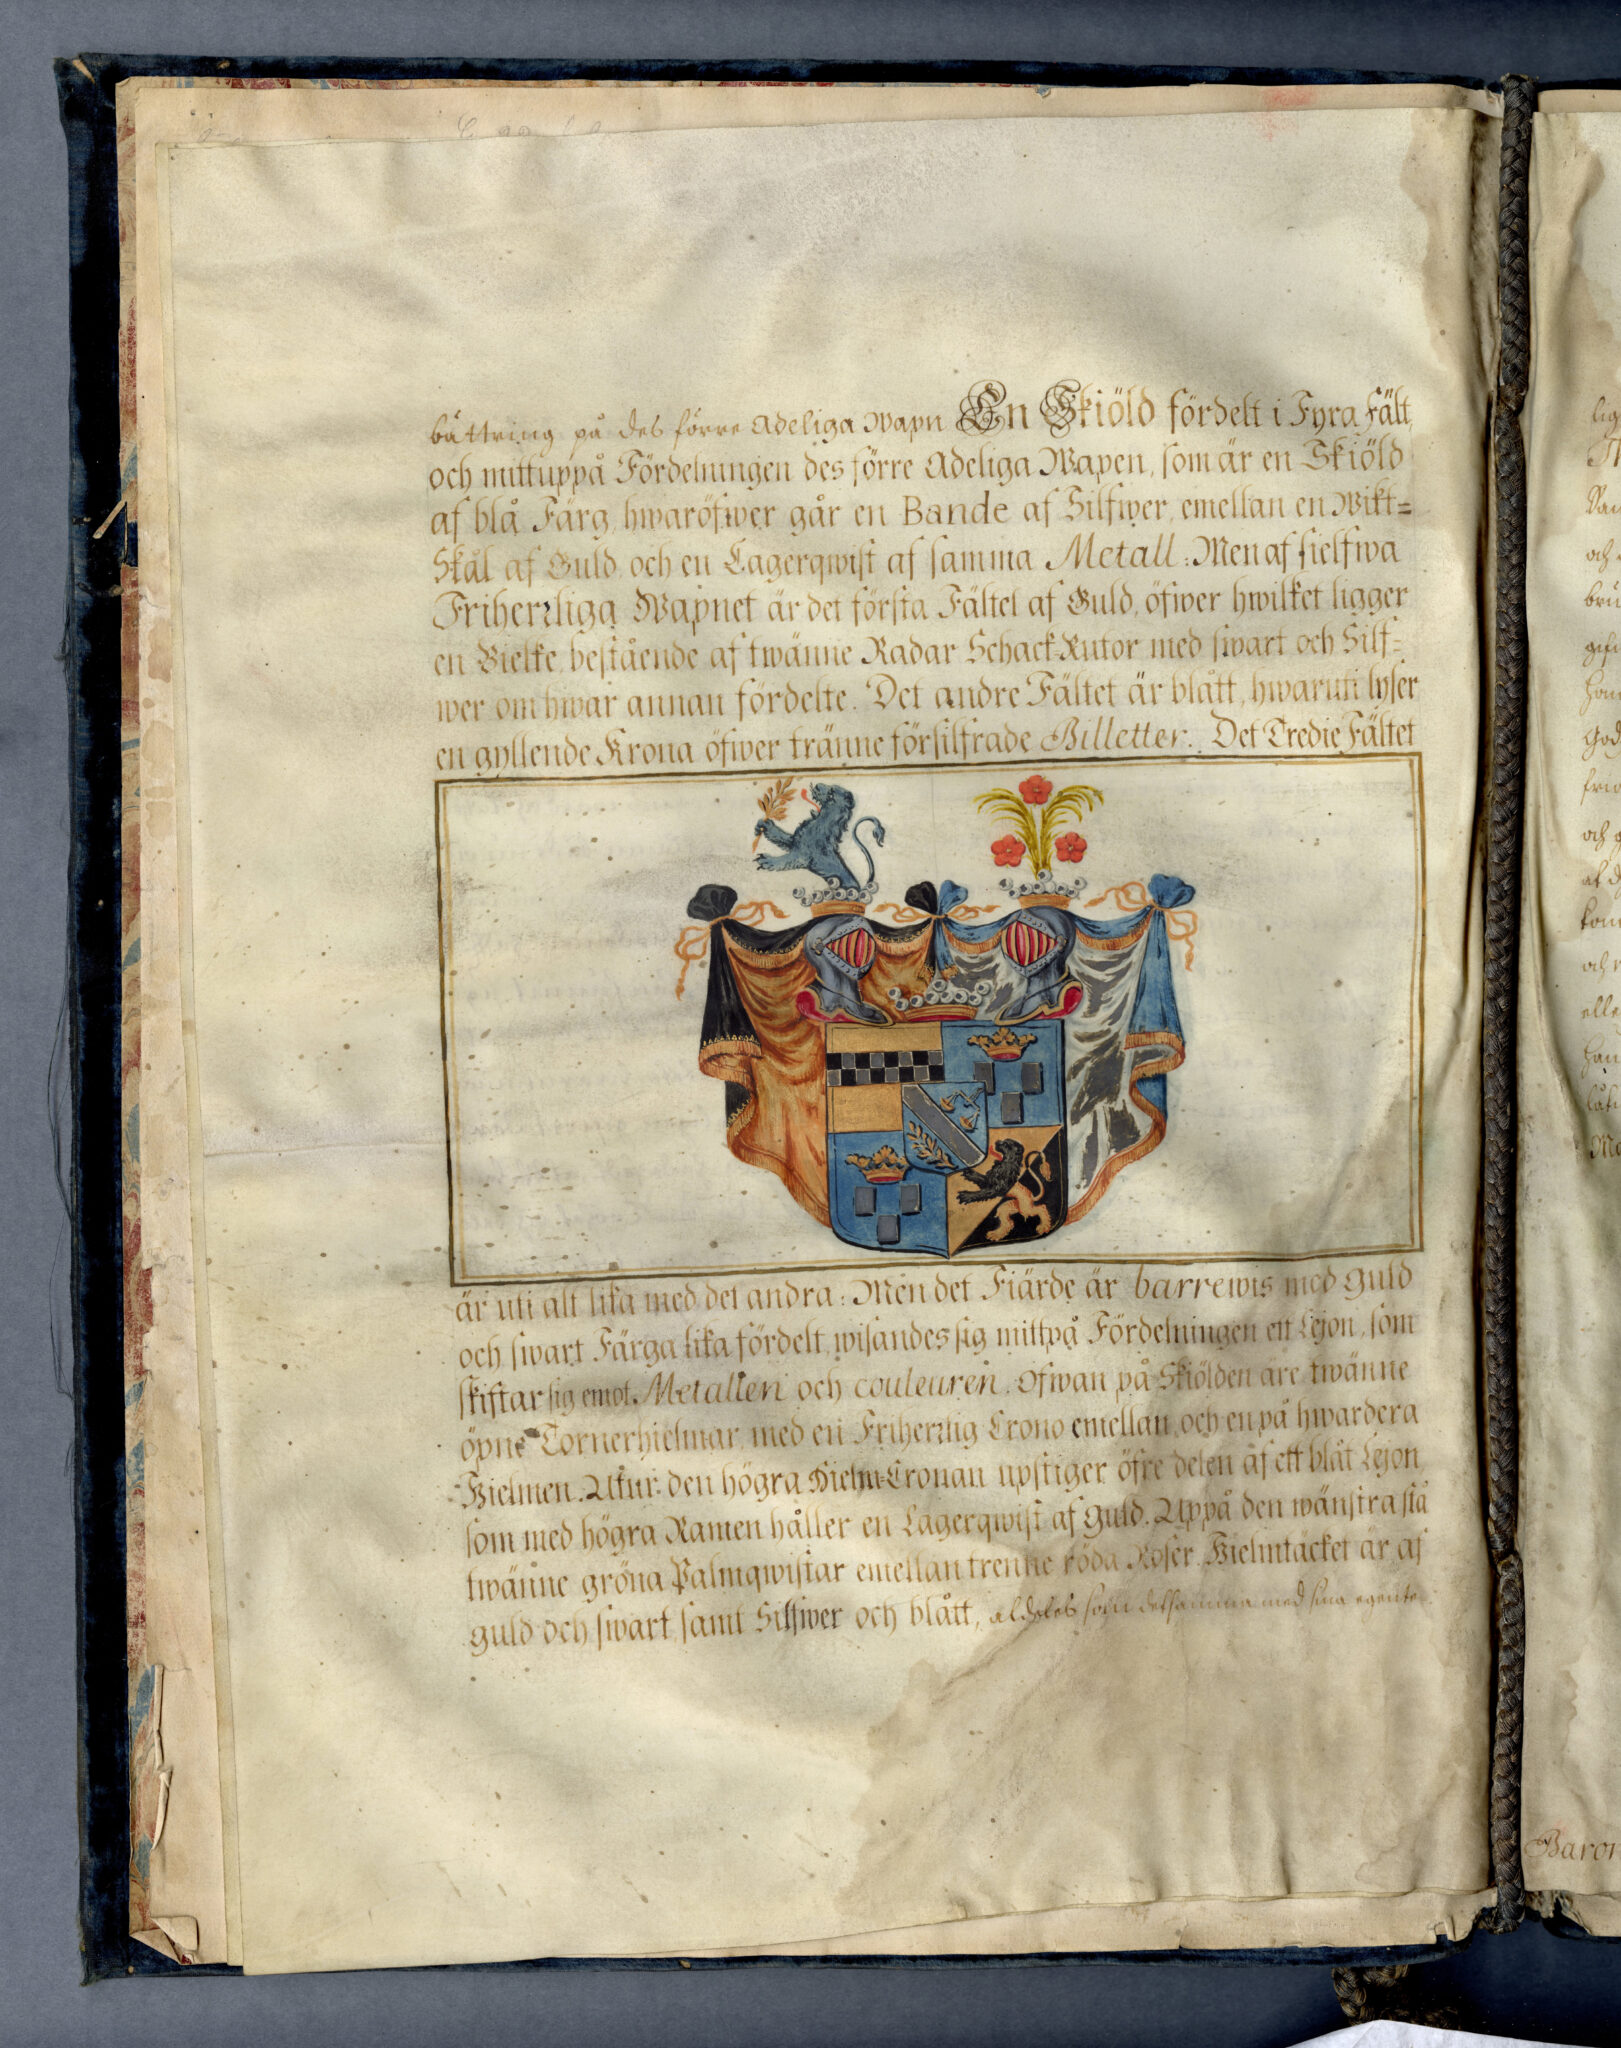 bättring på des förre Adeliga Wapn En Skiöld fördelt i Fyra Fält,
och mittuppå Fördelningen des förre Adeliga Wapen, som är en Skiöld
af blå Färg, hwaröfwer går en Bande af Silfwer, emellan en Wikt=
Skål af Guld, och en Lagerqwist af samma Metall: Men af sielfwa
Friherrliga Wapnet är det första Fältet af Guld, öfwer hwilket ligger
en Bielke, bestående af twänne Radar Schack-Rutor med swart och Silf=
wer om hwar annan fördelte. Det andre Fältet är blått, hwaruti lyser
en gyllende Krona öfwer tränne försilfrade Billetter. Det Tredie Fältet
är uti alt lika med det andra: Men det Fiärde är barrewis med Guld
och swart Färga lika fördelt, wisandes sig mittpå Fördelningen ett Lejon, som
skiftar sig emot Metallen och couleuren. Ofwan på Skiölden äre twänne
öpne Tornerhielmar, med en Friherrlig Crono emellan, och en på hwardera
Hielmen. Utur den högra Hielm-Cronan upstiger öfre delen af ett blåt Lejon,
som med högra Ramen håller en Lagerqwist af Guld. Uppå den wänstra stå
twänne gröna Palmqwistar emellan trenne röda Roser. Hielmtäcket är af
guld och swart, samt Silfwer och blått, aldeles som detsamma med sina egente=
lig
och
bru
God
och g
af d
kom
och
elle
Baron